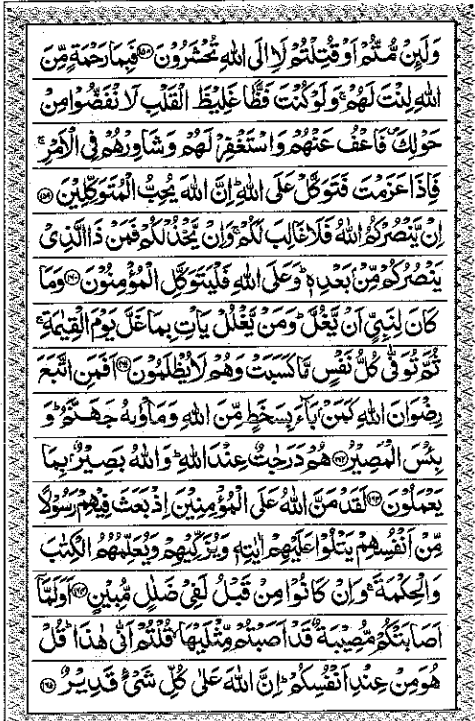 وَلَئِنْ مُّتُّمْ اَوْ قُتِلْتُمْ لَاِالَى اللّٰهِ تُحْشَرُوْنَ ﴿۱۵۸﴾ فَبِمَا رَحْمَةٍ مِّنَ
اللّٰهِ لِنْتَ لَهُمْ ۚ وَلَوْ كُنْتَ فَظًّا غَلِيْظَ الْقَلْبِ لَا نْفَضُّوْا مِنْ
حَوْلِكَ ۪ فَاعْفُ عَنْهُمْ وَاسْتَغْفِرْ لَهُمْ وَشَاوِرْهُمْ فِى الْاَمْرِ ۚ
فَاِذَا عَزَمْتَ فَتَوَكَّلْ عَلَى اللّٰهِ ؕ اِنَّ اللّٰهَ يُحِبُّ الْمُتَوَكِّلِيْنَ ﴿۱۵۹﴾
اِنْ يَّنْصُرْكُمُ اللّٰهُ فَلَا غَالِبَ لَكُمْ ۚ وَاِنْ يَّخْذُلْكُمْ فَمَنْ ذَا الَّذِىْ
يَنْصُرُكُمْ مِّنْۢ بَعْدِهٖ ؕ وَعَلَى اللّٰهِ فَلْيَتَوَكَّلِ الْمُؤْمِنُوْنَ ﴿۱۶۰﴾ وَمَا
كَانَ لِنَبِىٍّ اَنْ يَّغُلَّ ؕ وَمَنْ يَّغْلُلْ يَاْتِ بِمَا غَلَّ يَوْمَ الْقِيٰمَةِ ۚ
ثُمَّ تُوَفّٰى كُلُّ نَفْسٍ مَّا كَسَبَتْ وَهُمْ لَا يُظْلَمُوْنَ ﴿۱۶۱﴾ اَفَمَنِ اتَّبَعَ
رِضْوَانَ اللّٰهِ كَمَنْۢ بَآءَ بِسَخَطٍ مِّنَ اللّٰهِ وَمَاْوٰىهُ جَهَنَّمُ ؕ وَ
بِئْسَ الْمَصِيْرُ ﴿۱۶۲﴾ هُمْ دَرَجٰتٌ عِنْدَ اللّٰهِ ؕ وَاللّٰهُ بَصِيْرٌۢ بِمَا
يَعْمَلُوْنَ ﴿۱۶۳﴾ لَقَدْ مَنَّ اللّٰهُ عَلَى الْمُؤْمِنِيْنَ اِذْ بَعَثَ فِيْهِمْ رَسُوْلًا
مِّنْ اَنْفُسِهِمْ يَتْلُوْا عَلَيْهِمْ اٰيٰتِهٖ وَيُزَكِّيْهِمْ وَيُعَلِّمُهُمُ الْكِتٰبَ
وَالْحِكْمَةَ ۚ وَاِنْ كَانُوْا مِنْ قَبْلُ لَفِىْ ضَلٰلٍ مُّبِيْنٍ ﴿۱۶۴﴾ اَوَلَمَّاۤ
اَصَابَتْكُمْ مُّصِيْبَةٌ قَدْ اَصَبْتُمْ مِّثْلَيْهَا ۙ قُلْتُمْ اَنّٰى هٰذَا ؕ قُلْ
هُوَ مِنْ عِنْدِ اَنْفُسِكُمْ ؕ اِنَّ اللّٰهَ عَلٰى كُلِّ شَىْءٍ قَدِيْرٌ ﴿۱۶۵﴾